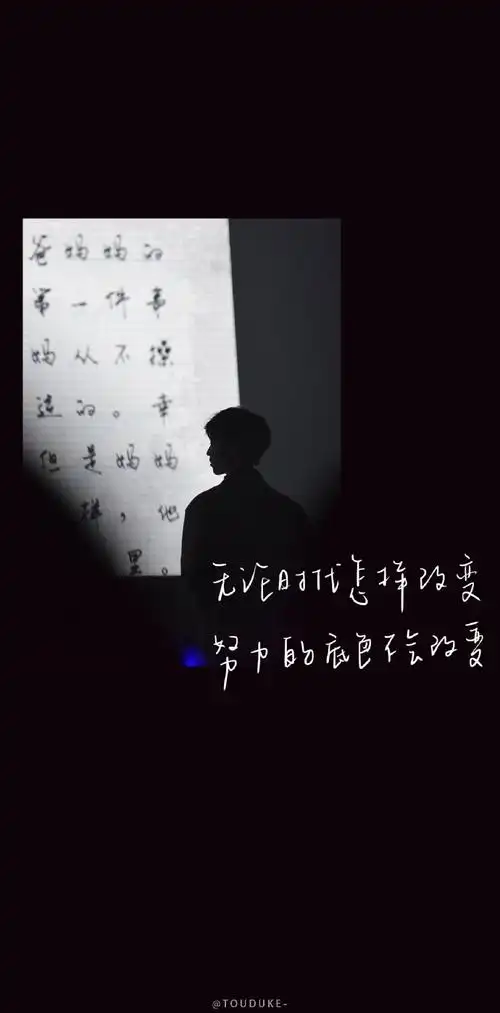 爸妈妈的
第一件事
妈从不撩
运的。幸
但是妈妈
样，他
里。
无论时代怎样改变
努力的底色不会改变
@TOUDUKE-